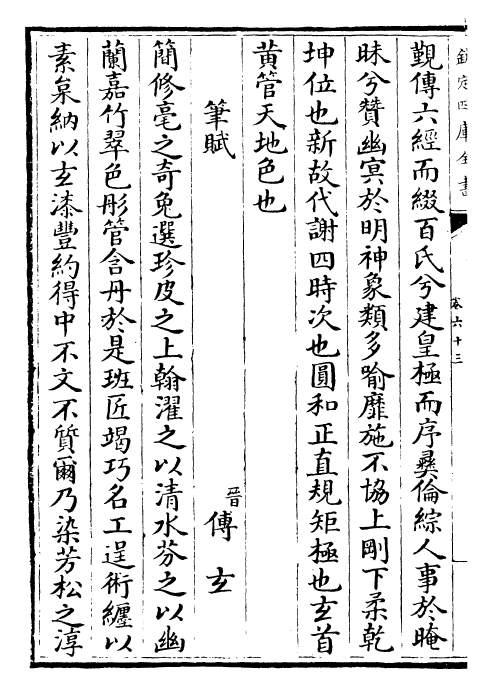 欽定四庫全書
卷六十三
覲傳六經而綴百氏兮建皇極而序彞倫綜人事於晻
昧兮贊幽冥於明神象類多喻靡施不協上剛下柔乾
坤位也新故代謝四時次也圓和正直規矩極也玄首
黃管天地色也
筆賦 晉傅玄
簡修毫之奇兔選珍皮之上翰濯之以清水芬之以幽
蘭嘉竹翠色彤管含丹於是班匠竭巧名工逞術纏以
素枲納以玄漆豐約得中不文不質爾乃染芳松之淳